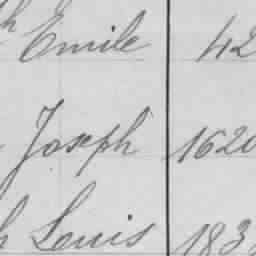 h Emile 42
Joseph 1620
h Louis 183